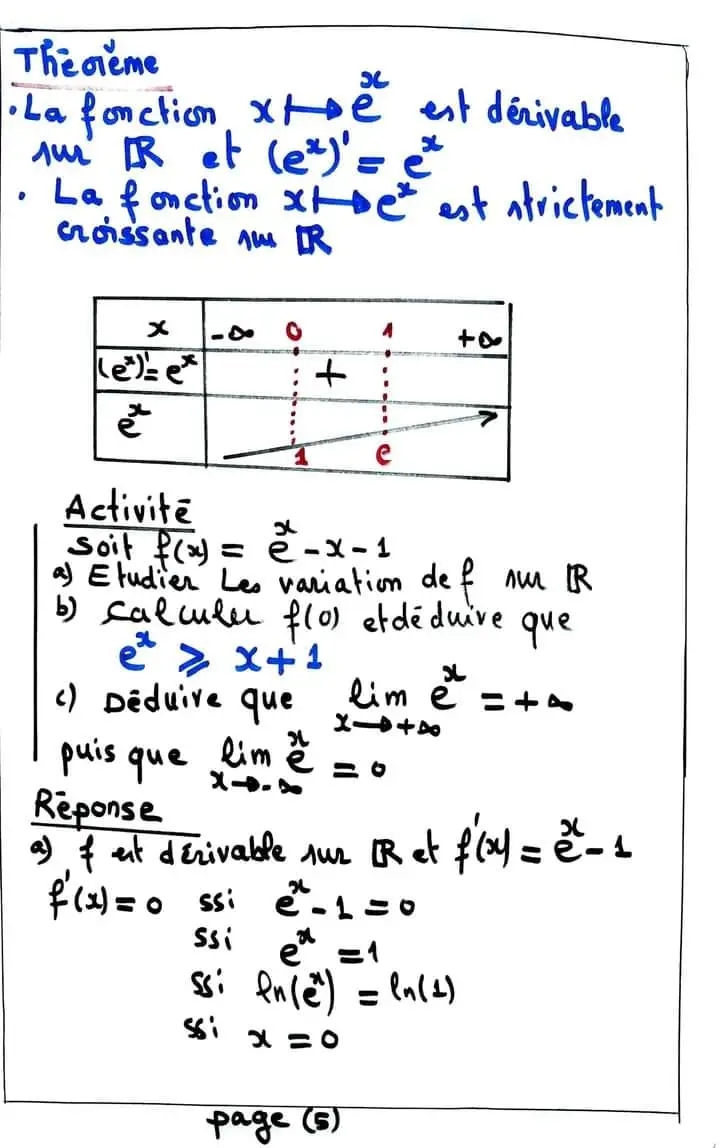 Théorème
• La fonction x ↦ e^x est dérivable
sur ℝ et (e^x)' = e^x
• La fonction x ↦ e^x est strictement
croissante sur ℝ
x -∞ 0 1 +∞
(e^x)' = e^x +
e^x 1 e
Activité
Soit f(x) = e^x - x - 1
a) Etudier Les variation de f sur ℝ
b) calculer f(0) et déduire que
e^x ⩾ x + 1
c) Déduire que lim e^x = +∞
x→+∞
puis que lim e^x = 0
x→-∞
Réponse
a) f est dérivable sur ℝ et f'(x) = e^x - 1
f'(x) = 0 ssi e^x - 1 = 0
ssi e^x = 1
ssi ln(e^x) = ln(1)
ssi x = 0
page (5)